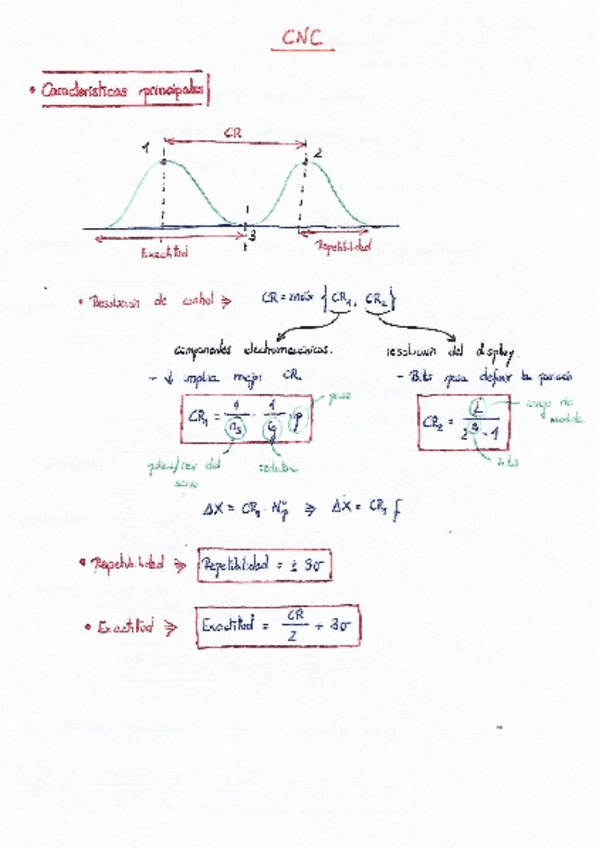 CNC
• Características principales
CR
1
2
3
Exactitud
Repetibilidad
• Resolución de control ⇒ CR = máx {CR₁, CR₂}
componentes electromecánicos.
resolución del display.
- ↓ implica mejor CR
- Bits para definir la posición
CR₁ = 1/nₛ · 1/ig · p
paso
CR₂ = L/(2ᴮ - 1)
rango de
medida
pulsos/rev del
servo
reductora
bits
ΔX = CR₁ · Nₚ ⇒ ΔẊ = CR₁ f
• Repetibilidad ⇒ Repetibilidad = ± 3σ
• Exactitud ⇒ Exactitud = CR/2 + 3σ